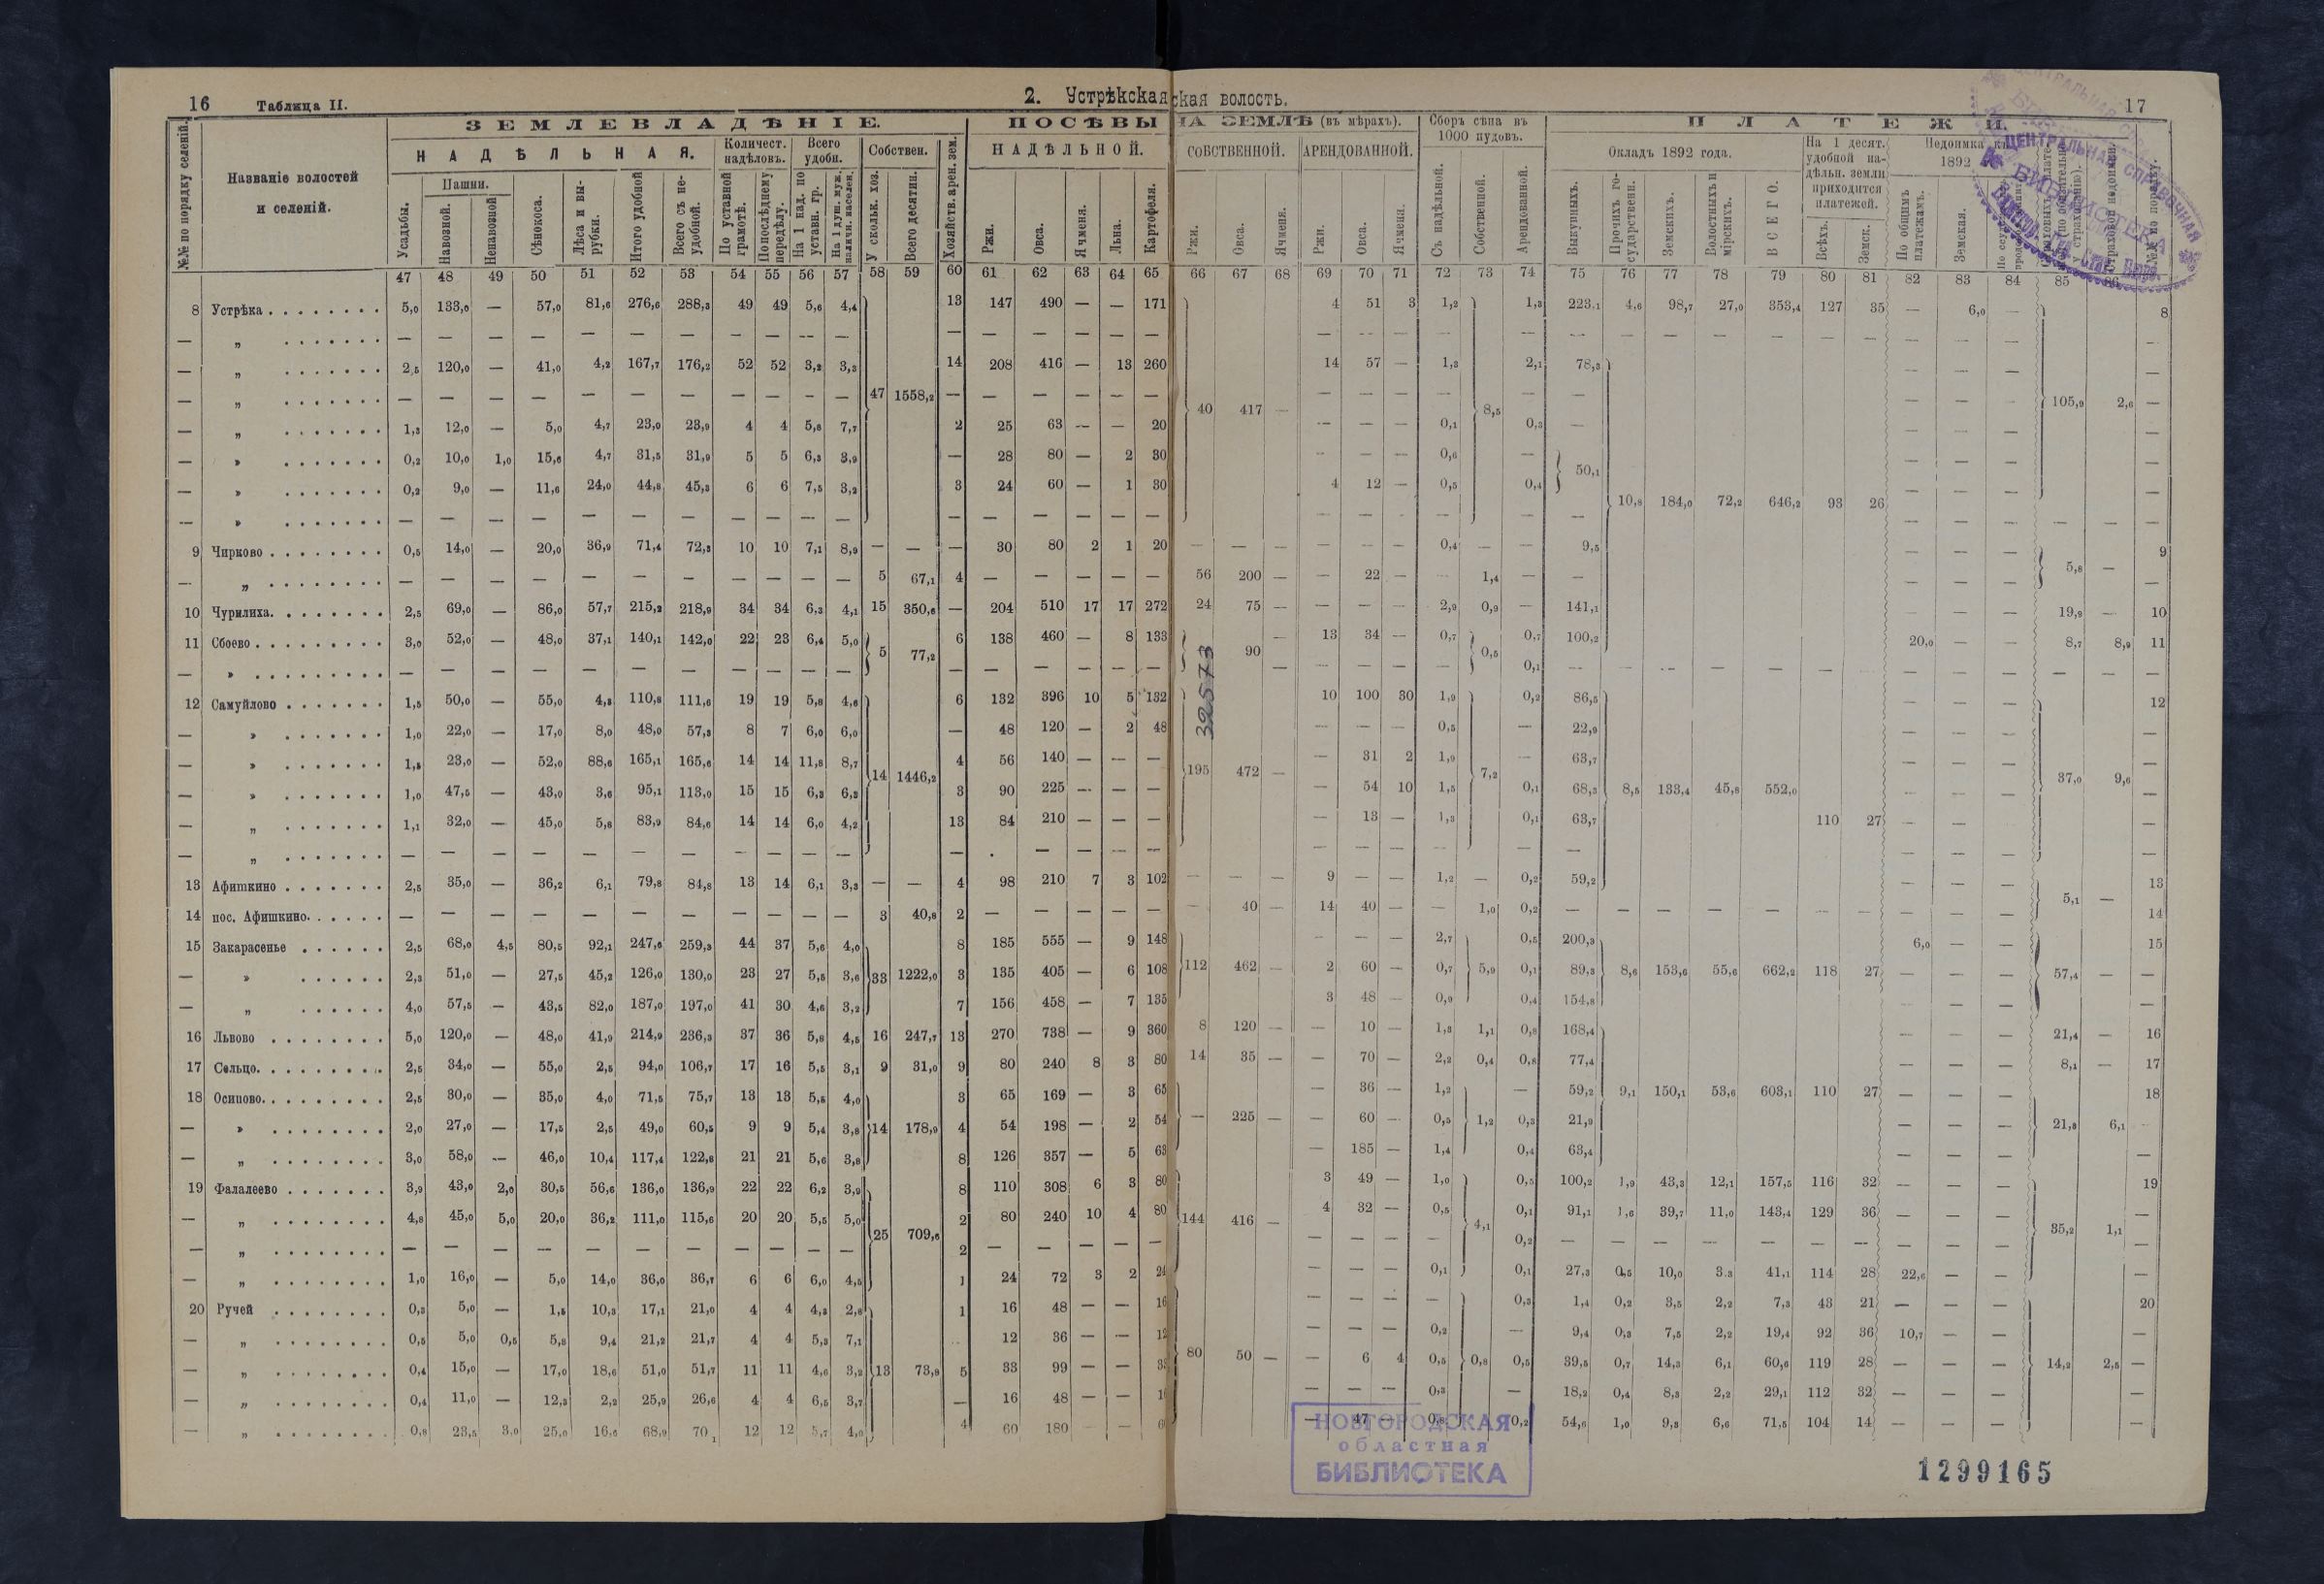 16 Таблица II. 2. Устрѣкская
ская волость. 17
ЗЕМЛЕВЛАДѢНІЕ. ПОСѢВЫ НА ЗЕМЛѢ (въ мѣрахъ). Сборъ сѣна въ 1000 пудовъ. ПЛАТЕЖИ.
№№ по порядку селеній.
Названіе волостей
и селеній.
НАДѢЛЬНАЯ. Количест. надѣловъ. Всего удобн. Собствен. Хозяйств. арен. зем. НАДѢЛЬНОЙ. СОБСТВЕННОЙ. АРЕНДОВАННОЙ. Окладъ 1892 года. На 1 десят. удобной надѣльн. земли приходится платежей. Недоимка
1892
Усадьбы. Пашни. Навозной. Ненавозной Сѣнокоса. Лѣса и вырубки. Итого удобной Всего съ неудобной. По уставной грамотѣ. По послѣднему передѣлу. На 1 над. по уставн. гр. На 1 душ. муж. наличн. населен. У скольк. хоз. Всего десятин.
Ржи. Овса. Ячменя. Льна. Картофеля. Ржи. Овса. Ячменя. Ржи. Овса. Ячменя. Съ надѣльной. Собственной. Арендованной. Выкупныхъ. Прочихъ государственн. Земскихъ. Волостныхъ и мірскихъ. ВСЕГО. Всѣхъ. Земск. По общимъ платежамъ. Земская.
47 48 49 50 51 52 53 54 55 56 57 58 59 60 61 62 63 64 65 66 67 68 69 70 71 72 73 74 75 76 77 78 79 80 81 82 83 84 85 86
8 Устрѣка 5,0 133,0 — 57,0 81,6 276,6 288,3 49 49 5,6 4,4 13 147 490 — — 171 4 51 3 1,2 1,3 223,1 4,6 98,7 27,0 353,4 127 35 — 6,0 — 8
— „ — — — — — — — — — — — — — — — — — — — — — — — — — — — — — —
— „ 2,5 120,0 — 41,0 4,2 167,7 176,2 52 52 3,2 3,3 14 208 416 — 13 260 14 57 — 1,3 2,1 78,3 — — — —
— „ — — — — — — — — — — — 47 1558,2 — — — — — — 40 417 — — — — — 8,5 — — — — — 105,9 2,6 —
— „ 1,3 12,0 — 5,0 4,7 23,0 23,9 4 4 5,8 7,7 2 25 63 — — 20 — — — 0,1 0,3 — — — — —
— „ 0,2 10,0 1,0 15,6 4,7 31,5 31,9 5 5 6,3 3,9 — 28 80 — 2 30 — — — 0,6 — 50,1 — — — —
— „ 0,2 9,0 — 11,6 24,0 44,8 45,3 6 6 7,5 3,2 3 24 60 — 1 30 4 12 — 0,5 0,4 10,8 184,0 72,2 646,2 93 26 — — — —
— „ — — — — — — — — — — — — — — — — — — — — — — — — — — — — —
9 Чирково 0,5 14,0 — 20,0 36,9 71,4 72,3 10 10 7,1 8,9 — — — 30 80 2 1 20 — — — — — — 0,4 — — 9,5 — — — 9
— „ — — — — — — — — — — — 5 67,1 4 — — — — — 56 200 — — 22 — — 1,4 — — — — — 5,8 — —
10 Чурилиха. 2,5 69,0 — 86,0 57,7 215,2 218,9 34 34 6,3 4,1 15 350,6 — 204 510 17 17 272 24 75 — — — — 2,9 0,9 — 141,1 — — — 19,9 — 10
11 Сбоево 3,0 52,0 — 48,0 37,1 140,1 142,0 22 23 6,4 5,0 5 77,2 6 138 460 — 8 133 90 — 13 34 — 0,7 0,5 0,7 100,2 20,0 — — 8,7 8,9 11
— „ — — — — — — — — — — — — — — — — — — — — — — 0,1 — — — — — — — — — — — — —
12 Самуйлово 1,5 50,0 — 55,0 4,3 110,8 111,6 19 19 5,8 4,6 6 132 396 10 5 132 10 100 30 1,9 0,2 86,5 — — — 12
— „ 1,0 22,0 — 17,0 8,0 48,0 57,3 8 7 6,0 6,0 — 48 120 — 2 48 — — — 0,5 — 22,9 — — — —
— „ 1,5 23,0 — 52,0 88,6 165,1 165,6 14 14 11,8 8,7 14 1446,2 4 56 140 — — — 195 472 — — 31 2 1,9 7,2 — 63,7 — — — 37,0 9,6 —
— „ 1,0 47,5 — 43,0 3,6 95,1 113,0 15 15 6,3 6,3 3 90 225 — — — — 54 10 1,5 0,1 68,3 8,5 133,4 45,8 552,0 — — — —
— „ 1,1 32,0 — 45,0 5,8 83,9 84,6 14 14 6,0 4,2 13 84 210 — — — — 13 — 1,3 0,1 63,7 110 27 — — —
— „ — — — — — — — — — — — — . — — — — — — — — — — — — — —
13 Афишкино 2,5 35,0 — 36,2 6,1 79,8 84,8 13 14 6,1 3,3 — — 4 98 210 7 3 102 — — — 9 — — 1,2 — 0,2 59,2 — — — 5,1 — 13
14 пос. Афишкино. — — — — — — — — — — — 3 40,8 2 — — — — — — 40 — 14 40 — — 1,0 0,2 — — — — — — — — — — 14
15 Закарасенье 2,5 68,0 4,5 80,5 92,1 247,6 259,3 44 37 5,6 4,0 8 185 555 — 9 148 — — — 2,7 0,5 200,3 6,0 — — 15
— „ 2,3 51,0 — 27,5 45,2 126,0 130,0 23 27 5,5 3,6 33 1222,0 3 135 405 — 6 108 112 462 — 2 60 — 0,7 5,9 0,1 89,3 8,6 153,6 55,6 662,2 118 27 — — — 57,4 — —
— „ 4,0 57,5 — 43,5 82,0 187,0 197,0 41 30 4,6 3,2 7 156 458 — 7 135 3 48 — 0,9 0,4 154,8 — — — —
16 Львово 5,0 120,0 — 48,0 41,9 214,9 236,3 37 36 5,8 4,5 16 247,7 13 270 738 — 9 360 8 120 — — 10 — 1,3 1,1 0,8 168,4 — — — 21,4 — 16
17 Сельцо. 2,5 34,0 — 55,0 2,5 94,0 106,7 17 16 5,5 3,1 9 31,0 9 80 240 8 3 80 14 35 — — 70 — 2,2 0,4 0,8 77,4 — — — 8,1 — 17
18 Осипово. 2,5 30,0 — 35,0 4,0 71,5 75,7 13 13 5,5 4,0 3 65 169 — 3 65 — 36 — 1,2 — 59,2 9,1 150,1 53,6 603,1 110 27 — — — 18
— „ 2,0 27,0 — 17,5 2,5 49,0 60,5 9 9 5,4 3,8 14 178,9 4 54 198 — 2 54 — 225 — — 60 — 0,5 1,2 0,3 21,9 — — — 21,3 6,1 —
— „ 3,0 58,0 — 46,0 10,4 117,4 122,8 21 21 5,6 3,8 8 126 357 — 5 63 — 185 — 1,4 0,4 63,4 — — — —
19 Фалалеево 3,9 43,0 2,0 30,5 56,6 136,0 136,9 22 22 6,2 3,9 8 110 308 6 3 80 3 49 — 1,0 0,5 100,2 1,9 43,3 12,1 157,5 116 32 — — — 19
— „ 4,8 45,0 5,0 20,0 36,2 111,0 115,6 20 20 5,5 5,0 25 709,6 2 80 240 10 4 80 144 416 — 4 32 — 0,5 4,1 0,1 91,1 1,6 39,7 11,0 143,4 129 36 — — — 35,2 1,1 —
— „ — — — — — — — — — — — 2 — — — — — — — — — 0,2 — — — — — — — — — — —
— „ 1,0 16,0 — 5,0 14,0 36,0 36,7 6 6 6,0 4,5 1 24 72 3 2 24 — — — 0,1 0,1 27,3 0,5 10,0 3,3 41,1 114 28 22,6 — — —
20 Ручей 0,3 5,0 — 1,5 10,3 17,1 21,0 4 4 4,3 2,8 1 16 48 — — 16 — — — — 0,3 1,4 0,2 3,5 2,2 7,3 43 21 — — — 20
— „ 0,5 5,0 0,5 5,8 9,4 21,2 21,7 4 4 5,3 7,1 12 36 — — 12 — — — 0,2 — 9,4 0,3 7,5 2,2 19,4 92 36 10,7 — — —
— „ 0,4 15,0 — 17,0 18,6 51,0 51,7 11 11 4,6 3,2 13 73,9 5 33 99 — — 33 80 50 — — 6 4 0,5 0,8 0,5 39,5 0,7 14,3 6,1 60,6 119 28 — — — 14,2 2,5 —
— „ 0,4 11,0 — 12,3 2,2 25,9 26,6 4 4 6,5 3,7 — 16 48 — — — — — 0,3 — 18,2 0,4 8,3 2,2 29,1 112 32 — — — —
— „ 0,8 23,5 3,0 25,0 16,6 68,9 12 12 5,7 4,0 4 60 180 — — — 47 — 0,8 0,2 54,6 1,0 9,3 6,6 71,5 104 14 — — — —
325573
НОВГОРОДСКАЯ
областная
БИБЛИОТЕКА
1299165
ЦЕНТРАЛЬНАЯ СПРАВОЧНАЯ
БИБЛИОТЕКА